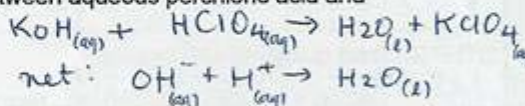 between aqueous perchloric acid and
KOH(aq) + HClO4(aq) → H2O(l) + KClO4(a
net: OH⁻(aq) + H⁺(aq) → H2O(l)